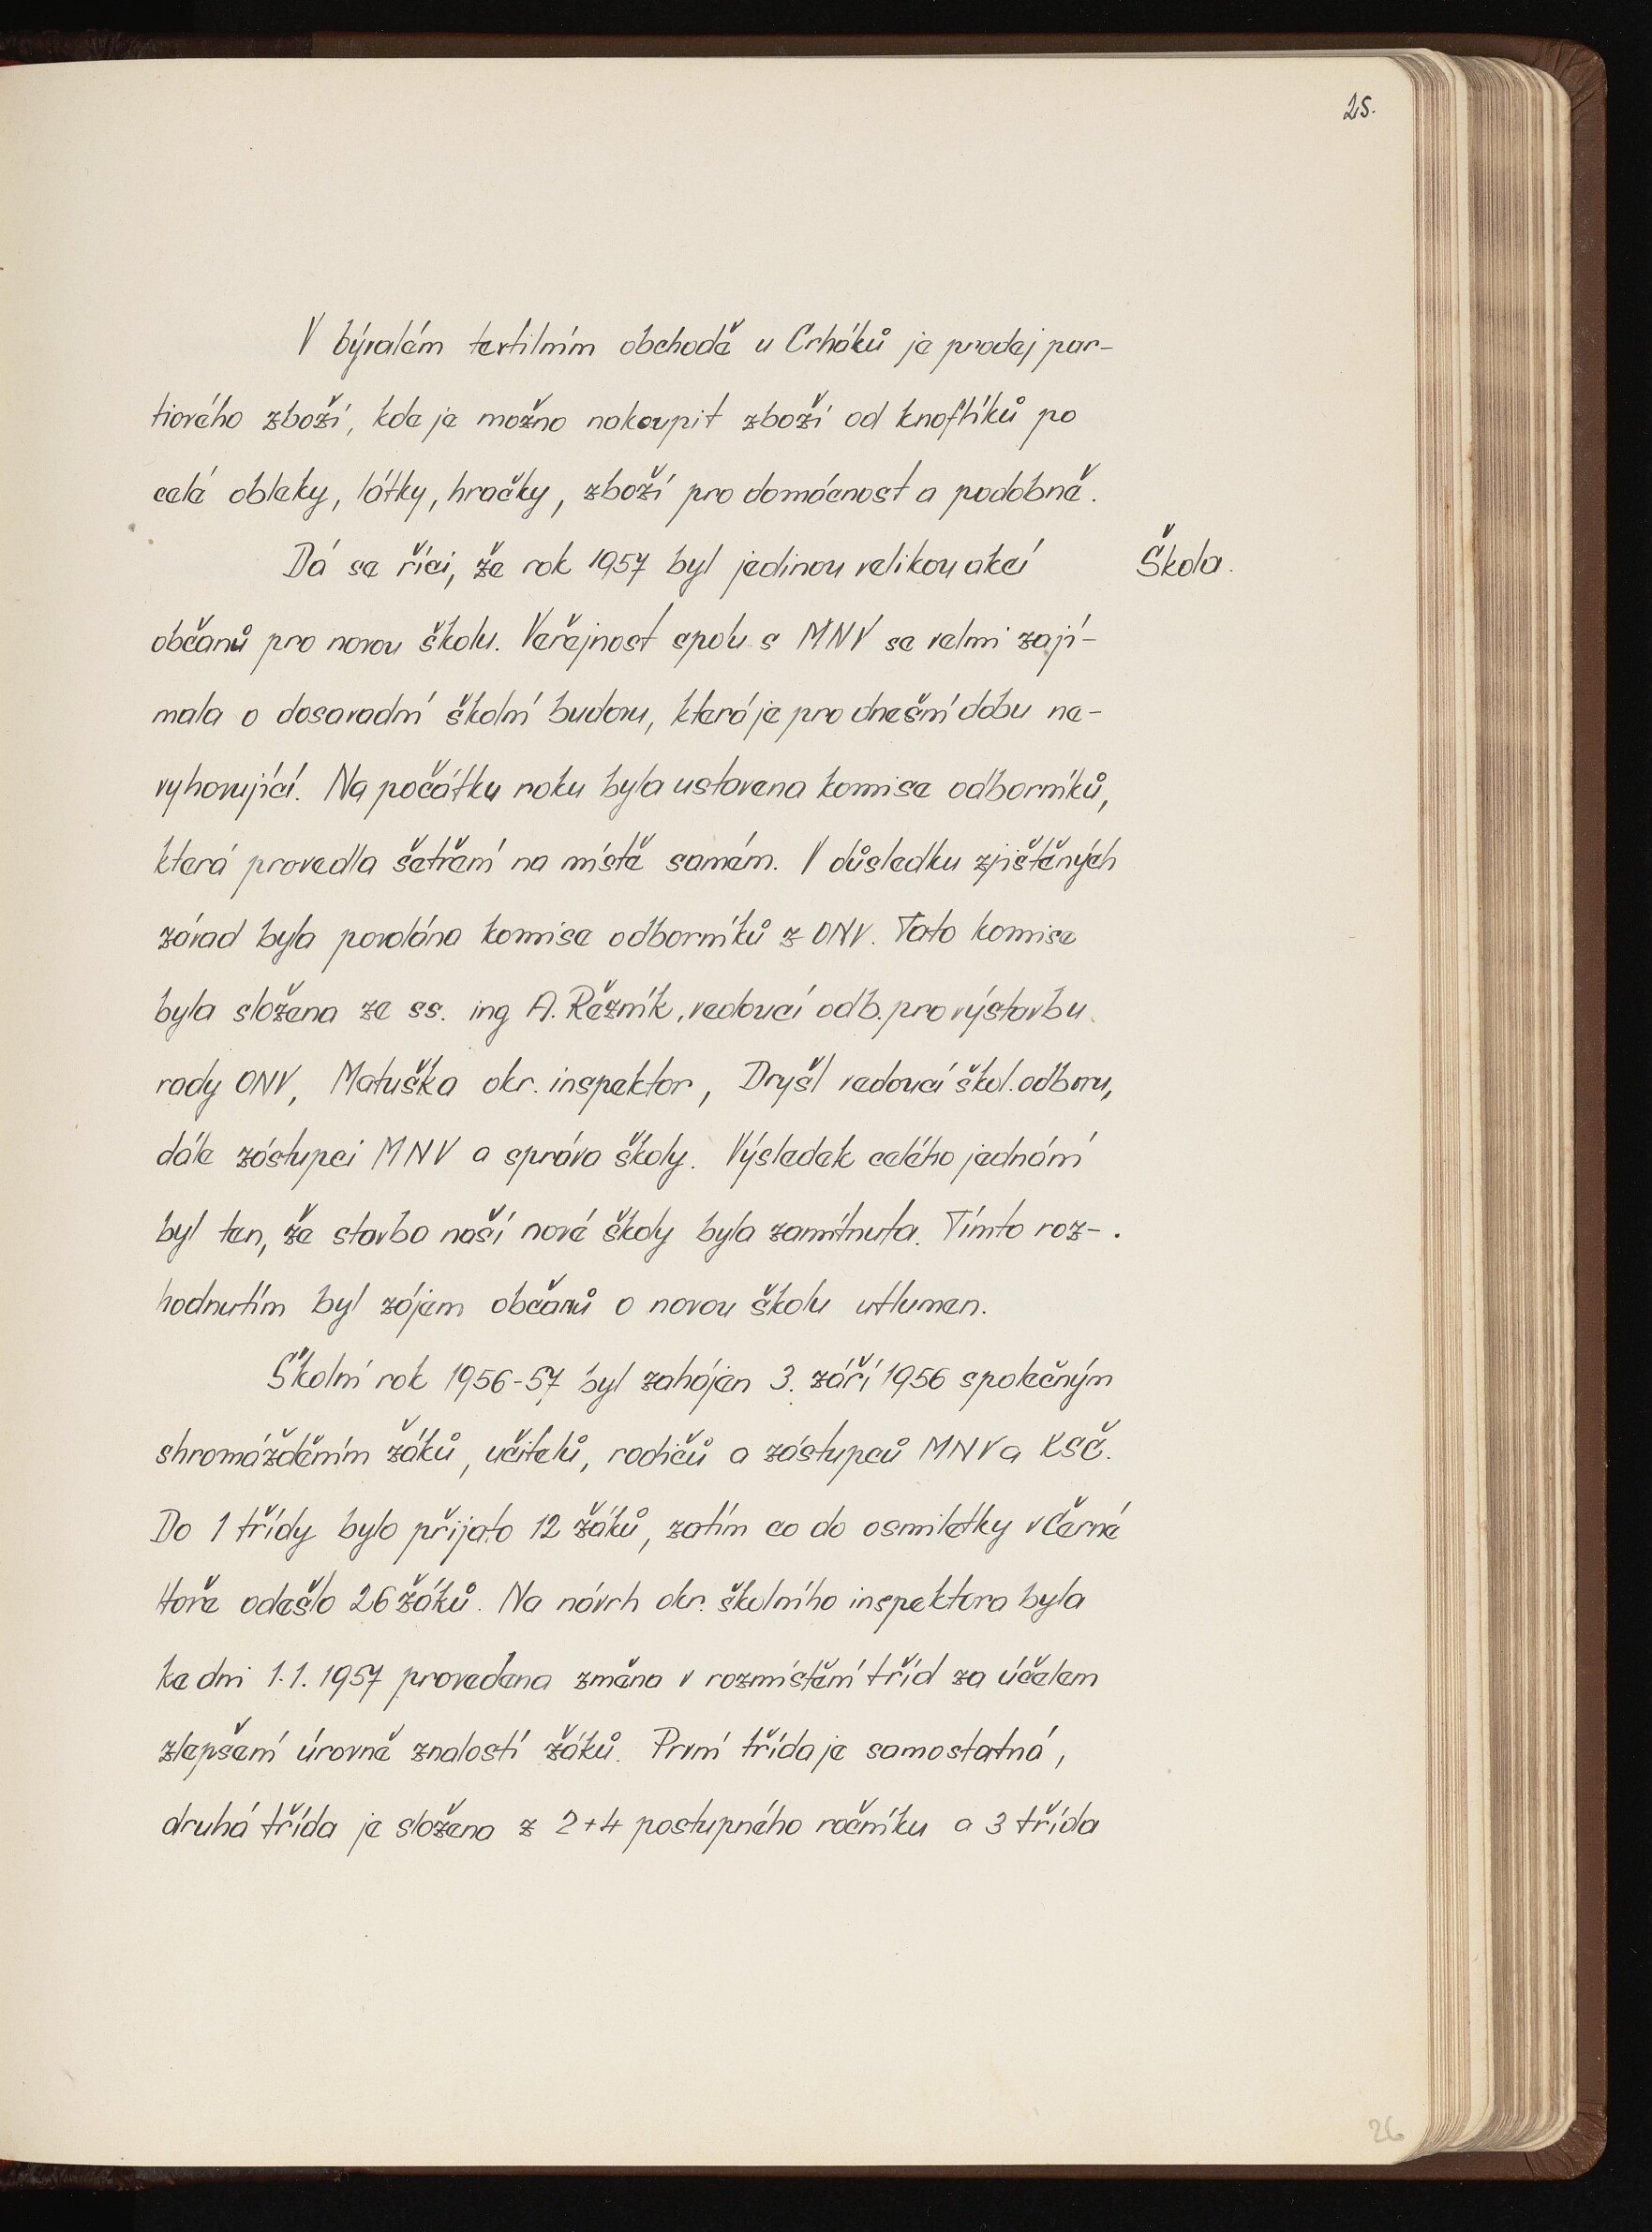 25.
V bývalém textilním obchodě u Crháků je prodej par-
tiového zboží, kde je možno nakoupit zboží od knoflíků po
celé obleky, látky, hračky, zboží pro domácnost a podobně.
Dá se říci, že rok 1957 byl jedinou velikou akcí
Škola.
občanů pro novou školu. Veřejnost spolu s MNV se velmi zají-
mala o dosavadní školní budovu, která je pro dnešní dobu ne-
vyhovující. Na počátku roku byla ustavena komise odborníků,
která provedla šetření na místě samém. V důsledku zjištěných
závad byla povolána komise odborníků z ONV. Tato komise
byla složena ze ss. ing A. Řezník, vedoucí odb. pro výstavbu
rady ONV, Matuška okr. inspektor, Dryšl vedoucí škol. odboru,
dále zástupci MNV a správa školy. Výsledek celého jednání
byl ten, že stavba naší nové školy byla zamítnuta. Tímto roz-
hodnutím byl zájem občanů o novou školu utlumen.
Školní rok 1956-57 byl zahájen 3. září 1956 společným
shromážděním žáků, učitelů, rodičů a zástupců MNV a KSČ.
Do 1 třídy bylo přijato 12 žáků, zatím co do osmiletky v Černé
Hoře odešlo 26 žáků. Na návrh okr. školního inspektora byla
ke dni 1.1. 1957 provedena změna v rozmístění tříd za účelem
zlepšení úrovně znalostí žáků. První třída je samostatná,
druhá třída je složena z 2+4 postupného ročníku a 3 třída
26